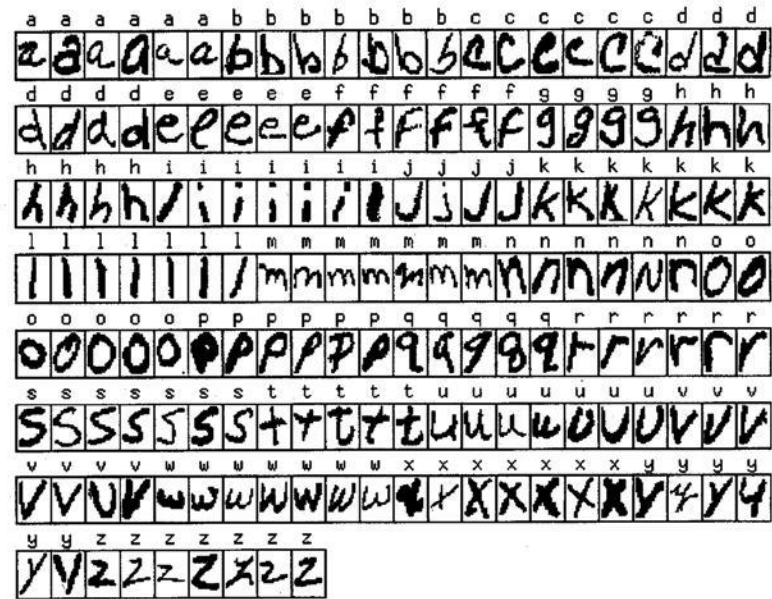 a a a a a a b b b b b b b c c c c c c d d d
a a a a a a b b b b b b b c c c c c c d d d
d d d d e e e e e f f f f f f g g g g h h h
d d d d e e e e e f f f f f f g g g g h h h
h h h h i i i i i i i j j j j k k k k k k k
h h h h i i i i i i i J j J J k k k k k k k
l l l l l l l m m m m m m m n n n n n n o o
l l l l l l l m m m m m m m n n n n N n o o
o o o o o p p p p p p q q q q q r r r r r r
o o o o o p p p p p p q q q q q r r r r r r
s s s s s s s t t t t t u u u u u u u v v v
s s s s s s s t t t t t u u u u u u u v v v
v v v v w w w w w w w x x x x x x x y y y y
v v v v w w w w w w w x x x x x x x y y y y
y y z z z z z z z
y y z z z z z z z